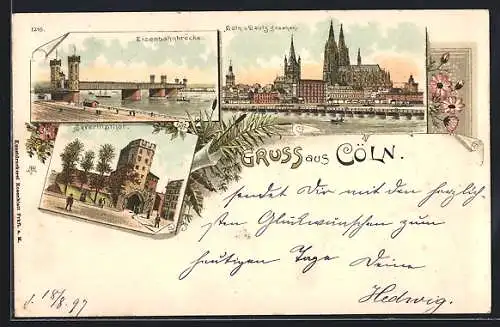 1246.
Eisenbahnbrücke.
Cöln v. Deutz gesehen.
Severinsthor.
GRUSS aus CÖLN.
Kunstdruckerei Rosenblatt Frkft. a. M.
sendet Dir mit den herzlich-
sten Glückwünschen zum
heutigen Tage Deine
Hedwig.
d. 18/8. 97